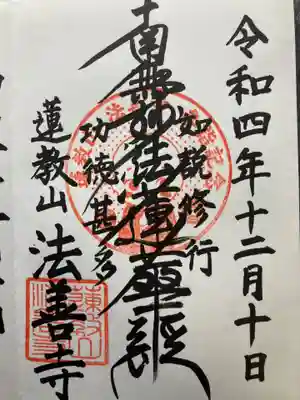 令和四年十二月十日
如説修行
南無妙法蓮華経
功徳甚多
蓮教山 法善寺